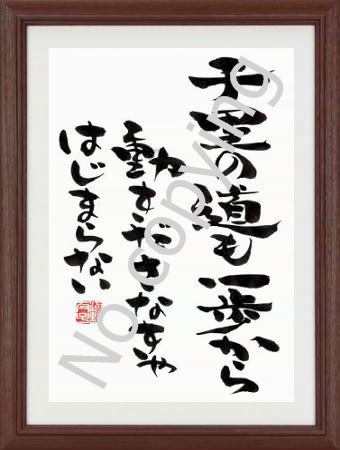 千里の道も一歩から
動きださなきゃ
はじまらない
No copying